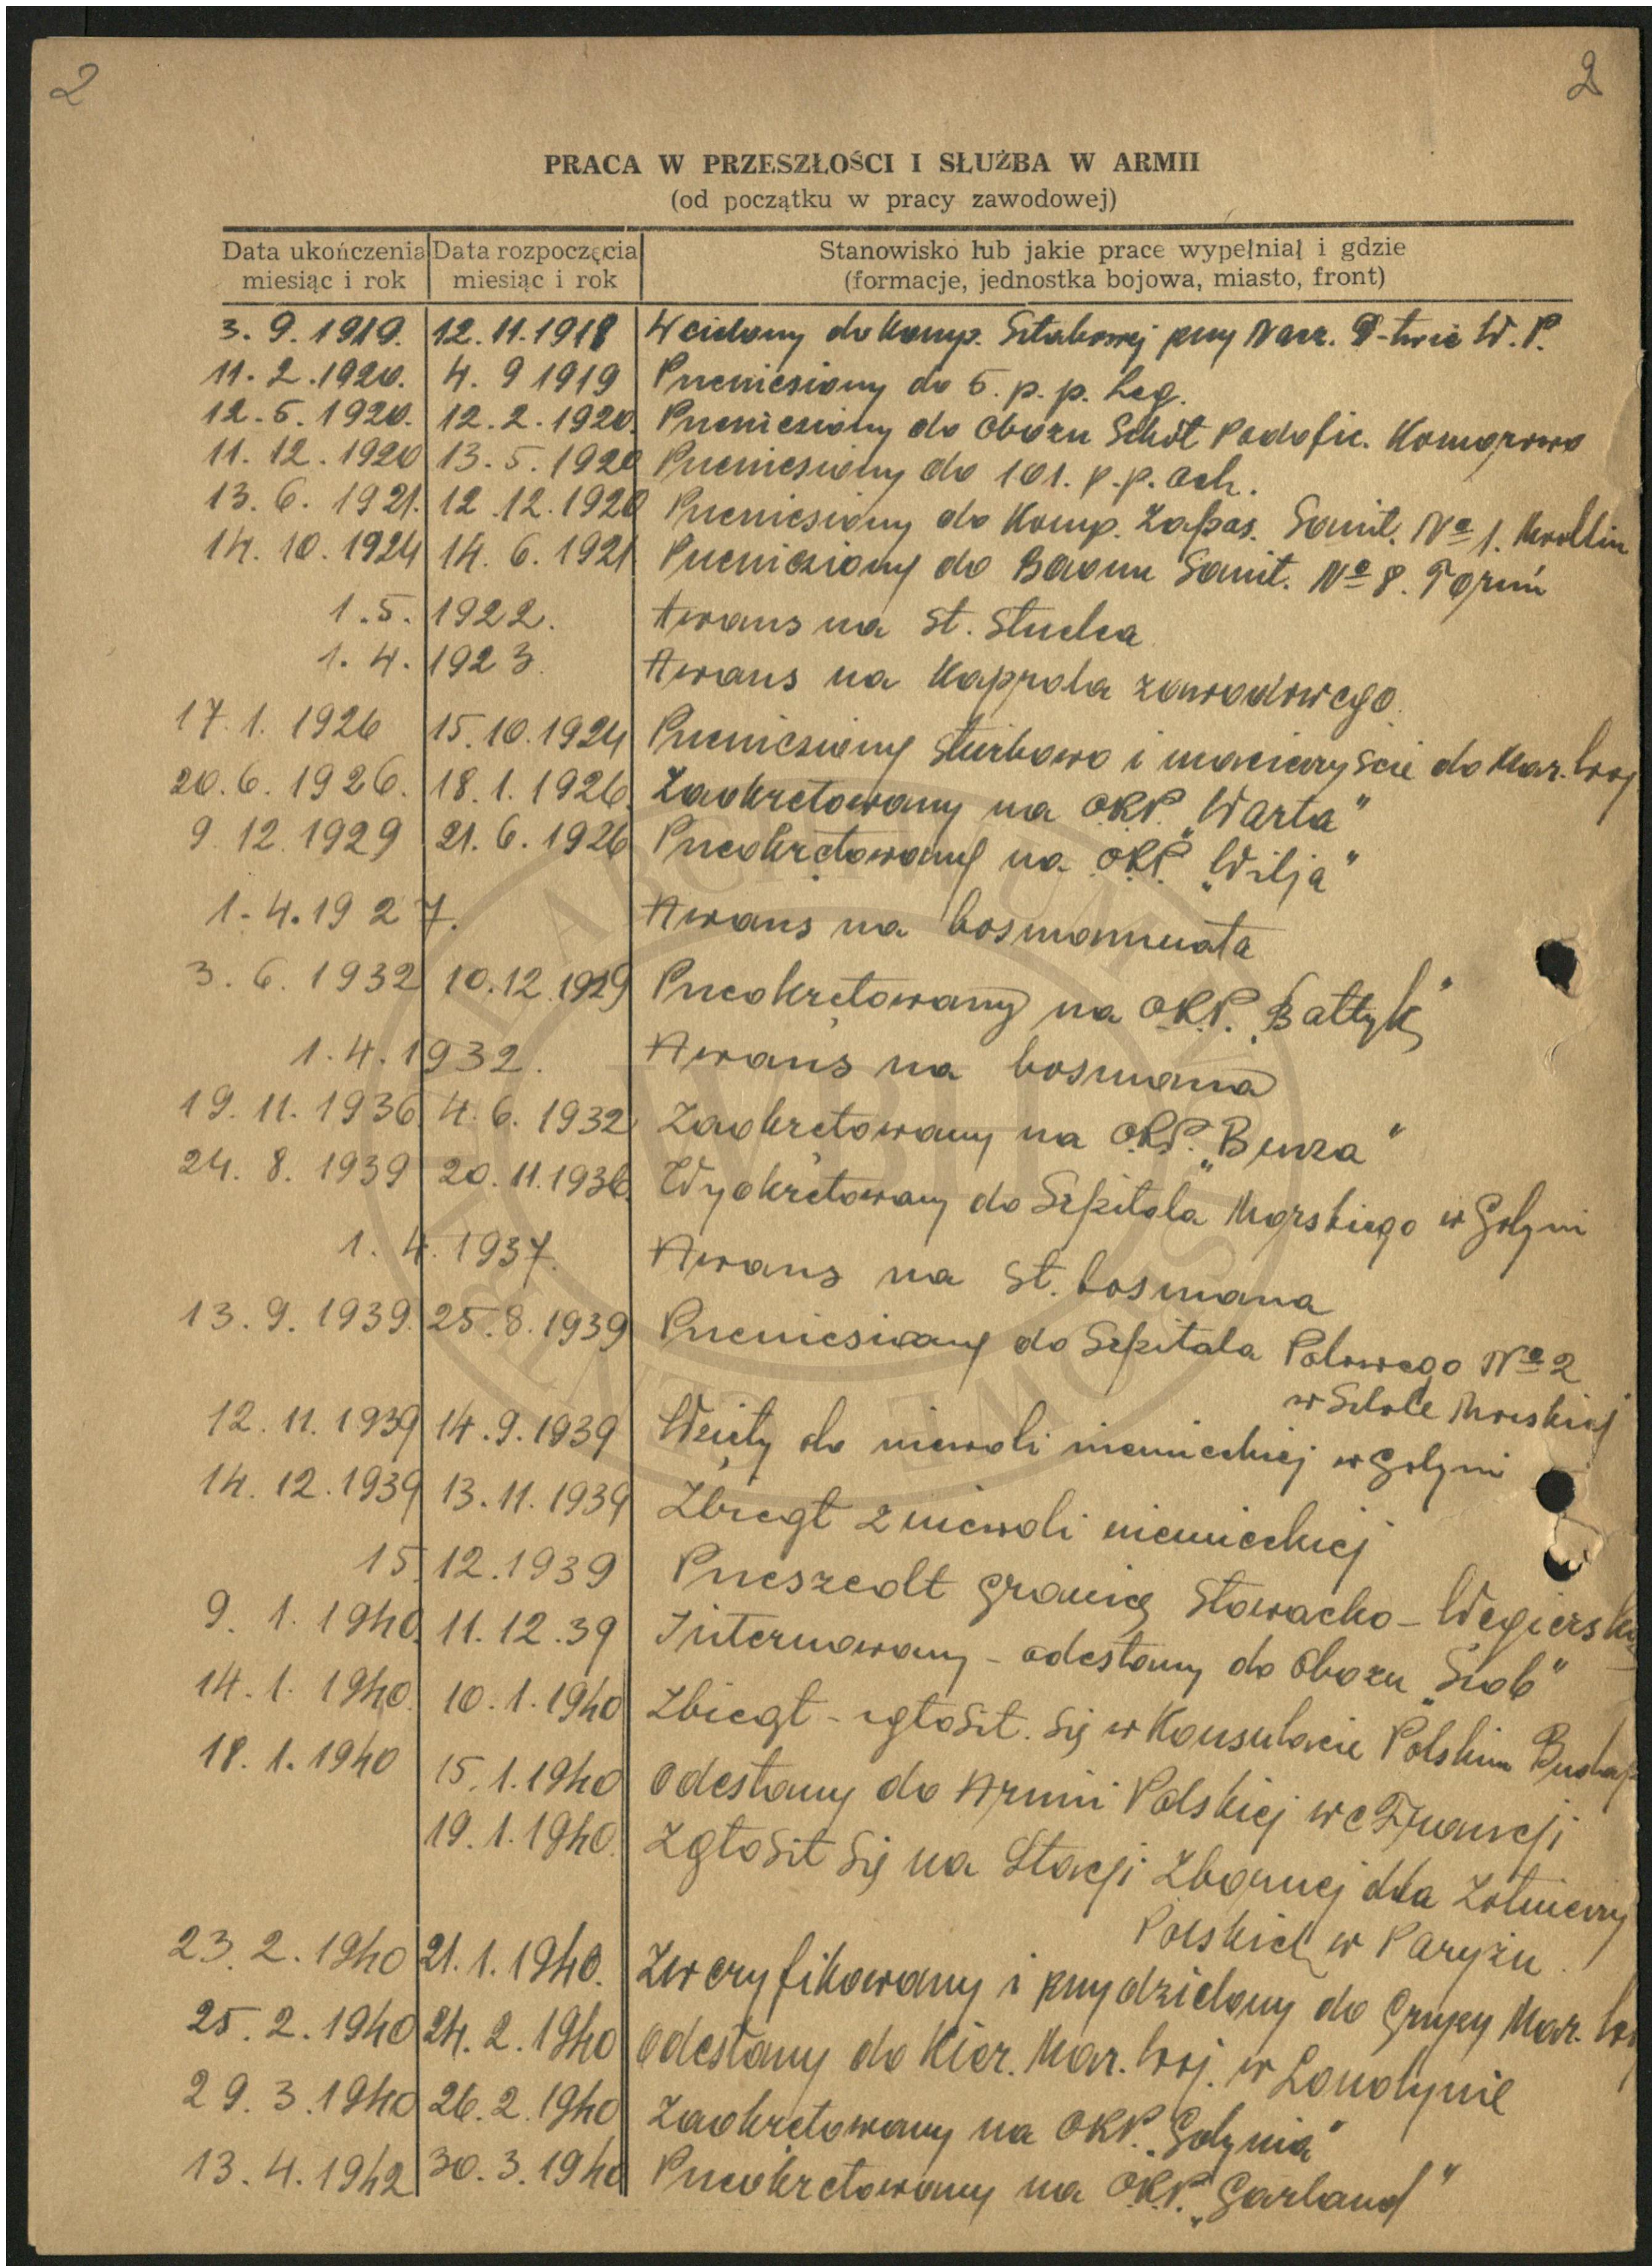 2 2
PRACA W PRZESZŁOŚCI I SŁUŻBA W ARMII
(od początku w pracy zawodowej)
Data ukończenia miesiąc i rok | Data rozpoczęcia miesiąc i rok | Stanowisko lub jakie prace wypełniał i gdzie (formacje, jednostka bojowa, miasto, front)
3. 9. 1919. 12. 11. 1918 Wcielony do Komp. Sztabowej przy Nacz. D-twie W. P.
11. 2. 1920. 4. 9 1919 Przeniesiony do 5. p. p. Leg.
12. 5. 1920. 12. 2. 1920. Przeniesiony do Obozu Szkół Podofic. Komorowo
11. 12. 1920 13. 5. 1920 Przeniesiony do 101. p. p. Och.
13. 6. 1921. 12. 12. 1920 Przeniesiony do Komp. Zapas. Sanit. No 1.
14. 10. 1924 14. 6. 1921 Przeniesiony do Baonu Sanit. No 8. Toruń
1. 5. 1922. Awans na St. Strzelca
1. 4. 1923. Awans na Kaprala zawodowego.
17. 1. 1926 15. 10. 1924 Przeniesiony służbowo i macierzyście do Mar. Woj
20. 6. 1926. 18. 1. 1926. Zaokrętowany na O.R.P. „Warta"
9. 12. 1929 21. 6. 1926 Przeokrętowany na O.R.P. „Wilja"
1. 4. 1927. Awans na bosmanmata
3. 6. 1932 10. 12. 1929 Przeokrętowany na O.R.P. „Bałtyk"
1. 4. 1932. Awans na bosmana
19. 11. 1936 4. 6. 1932 Zaokrętowany na O.R.P. „Burza"
24. 8. 1939 20. 11. 1936. Wyokrętowany do Szpitala Morskiego w Gdyni
1. 4. 1937. Awans na St. bosmana
13. 9. 1939. 25. 8. 1939 Przeniesiony do Szpitala Polowego No 2
w Szkole Morskiej
12. 11. 1939 14. 9. 1939 Wzięty do niewoli niemieckiej w Gdyni
14. 12. 1939 13. 11. 1939 Zbiegł z niewoli niemieckiej
15. 12. 1939 Przeszedł granicę Słowacko - Węgierską
9. 1. 1940. 11. 12. 39 Internowany - odesłany do Obozu
14. 1. 1940. 10. 1. 1940 Zbiegł - zgłosił się w Konsulacie Polskim Budap
18. 1. 1940 15. 1. 1940 Odesłany do Armii Polskiej we Francji
19. 1. 1940. Zgłosił się na Stacji Zbornej dla Żołnierzy
Polskich w Paryżu.
23. 2. 1940 21. 1. 1940. Zweryfikowany i przydzielony do Grupy Mar. Wo
25. 2. 1940 24. 2. 1940 Odesłany do Kier. Mar. Woj. w Londynie
29. 3. 1940 26. 2. 1940 Zaokrętowany na O.R.P. „Gdynia"
13. 4. 1942 30. 3. 1940 Przeokrętowany na O.R.P. „Garland"